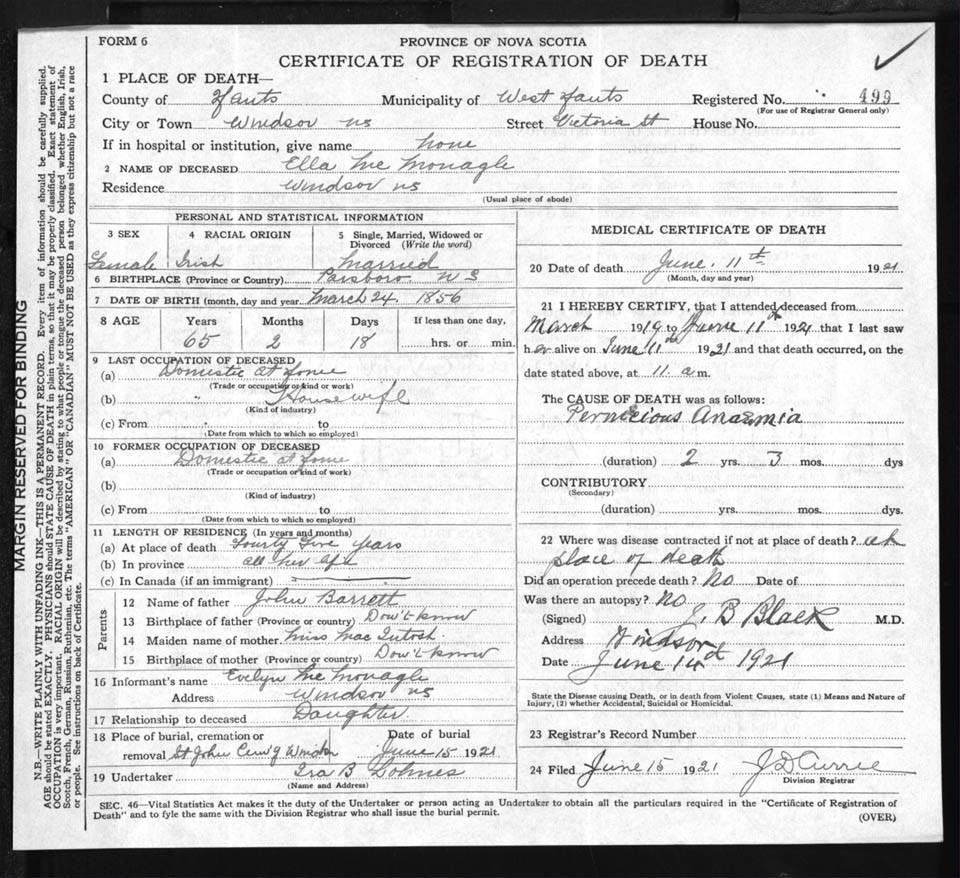 FORM 6
PROVINCE OF NOVA SCOTIA
CERTIFICATE OF REGISTRATION OF DEATH
1 PLACE OF DEATH—
County of Hants Municipality of West Hants Registered No. 499
(For use of Registrar General only)
City or Town Windsor NS Street Victoria St House No.
If in hospital or institution, give name none
2 NAME OF DECEASED Ella Mc Monagle
Residence Windsor NS
(Usual place of abode)
PERSONAL AND STATISTICAL INFORMATION
3 SEX 4 RACIAL ORIGIN 5 Single, Married, Widowed or Divorced (Write the word)
Female Irish Married
6 BIRTHPLACE (Province or Country) Parsboro NS
7 DATE OF BIRTH (month, day and year March 24. 1856
8 AGE Years Months Days If less than one day,
65 2 18 hrs. or min.
9 LAST OCCUPATION OF DECEASED
(a) Domestic at home
(Trade or occupation or kind or work)
(b) " Housewife
(Kind of industry)
(c) From to
(Date from which to which so employed)
10 FORMER OCCUPATION OF DECEASED
(a) Domestic at home
(Trade or occupation or kind of work)
(b)
(Kind of industry)
(c) From to
(Date from which to which so employed)
11 LENGTH OF RESIDENCE (In years and months)
(a) At place of death Fourty Five years
(b) In province all her life
(c) In Canada (if an immigrant)
Parents
12 Name of father John Barrett
13 Birthplace of father (Province or country) Don't know
14 Maiden name of mother Miss Mac Intosh
15 Birthplace of mother (Province or country) Don't know
16 Informant's name Evelyn Mc Monagle
Address Windsor NS
17 Relationship to deceased Daughter
18 Place of burial, cremation or Date of burial
removal St John Cem'y Windsor June 15 1921
19 Undertaker Ira B
(Name and Address)
MEDICAL CERTIFICATE OF DEATH
20 Date of death June. 11th 1921
(Month, day and year)
21 I HEREBY CERTIFY, that I attended deceased from
March 1919 to June 11th 1921 that I last saw
her alive on June 11th 1921 and that death occurred, on the
date stated above, at 11 a m.
The CAUSE OF DEATH was as follows:
Pernicious Anaemia
(duration) 2 yrs. 3 mos. dys
CONTRIBUTORY
(Secondary)
(duration) yrs. mos. dys.
22 Where was disease contracted if not at place of death? at
place of death
Did an operation precede death? No Date of
Was there an autopsy? No
(Signed) B Black M.D.
Address Windsor
Date June 14 1921
State the Disease causing Death, or in death from Violent Causes, state (1) Means and Nature of
Injury, (2) whether Accidental, Suicidal or Homicidal.
23 Registrar's Record Number
24 Filed June 15 1921 J D Currie
Division Registrar
SEC. 46—Vital Statistics Act makes it the duty of the Undertaker or person acting as Undertaker to obtain all the particulars required in the "Certificate of Registration of
Death" and to fyle the same with the Division Registrar who shall issue the burial permit.
(OVER)
MARGIN RESERVED FOR BINDING
N.B.—WRITE PLAINLY WITH UNFADING INK—THIS IS A PERMANENT RECORD. Every item of information should be carefully supplied.
AGE should be stated EXACTLY. PHYSICIANS should STATE CAUSE OF DEATH in plain terms, so that it may be properly classified. Exact statement of
OCCUPATION is very important. RACIAL ORIGIN will be described by stating to what people or tongue the deceased person belonged whether English, Irish,
Scotch, French, German, Russian, Ruthenian, etc. The terms "AMERICAN" OR "CANADIAN" MUST NOT BE USED as they express citizenship but not a race
or people. See instructions on back of Certificate.